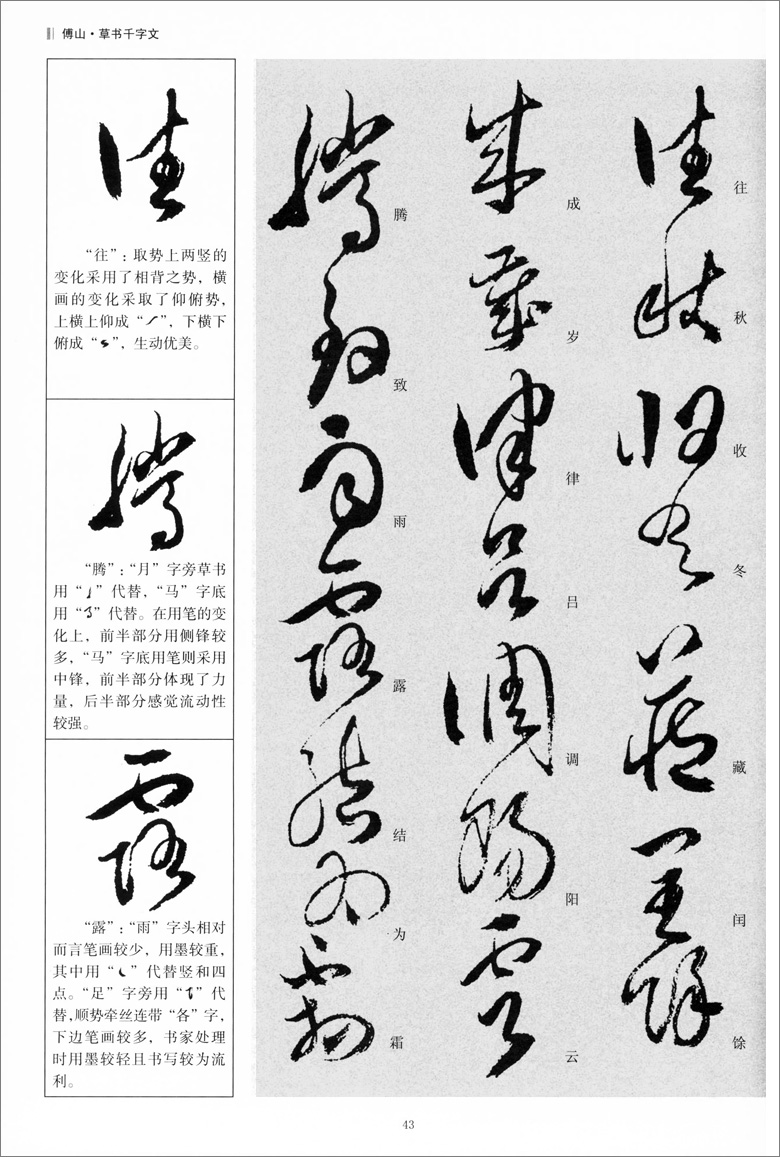 傅山·草书千字文
“往”：取势上两竖的
变化采用了相背之势，横
画的变化采取了仰俯势，
上横上仰成“㇀”，下横下
俯成“”，生动优美。
“腾”：“月”字旁草书
用“”代替，“马”字底
用“”代替。在用笔的变
化上，前半部分用侧锋较
多，“马”字底用笔则采用
中锋，前半部分体现了力
量，后半部分感觉流动性
较强。
“露”：“雨”字头相对
而言笔画较少，用墨较重，
其中用“”代替竖和四
点。“足”字旁用“”代
替，顺势牵丝连带“各”字，
下边笔画较多，书家处理
时用墨较轻且书写较为流
利。
往秋收冬藏闰馀
成岁律吕调阳云
腾致雨露结为霜
43